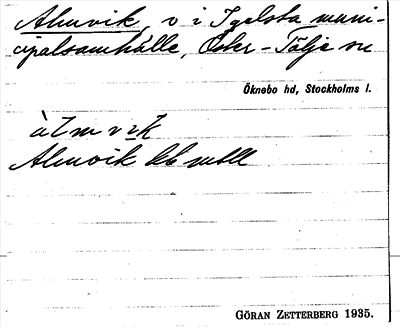 Almvik, v i Igelsta muni-
cipalsamhälle, Öster-Tälje sn
Öknebo hd, Stockholms l.
àlmvik
Almvik
GÖRAN ZETTERBERG 1935.